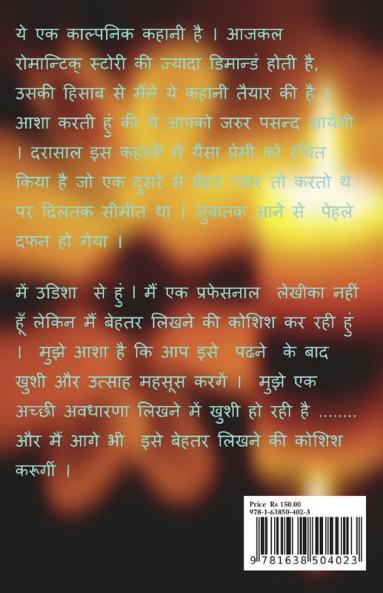 ये एक काल्पनिक कहानी है । आजकल
रोमान्टिक् स्टोरी की ज्यादा डिमान्डं होती है,
उसकी हिसाब से मैंने ये कहानी तैयार की है ।
आशा करती हुं की ये आपको जरुर पसन्द आयेगी
। दरासाल इस कहानी में यैसा प्रेमी को रचित
किया है जो एक दुसरे से बेहत प्यार तो करतो थे
पर दिलतक सीमीत था । जुबातक आने से पेहले
दफन हो गेया ।
में उडिशा से हुं । मैं एक प्रफेसनाल लेखीका नहीं
हूँ लेकिन मैं बेहतर लिखने की कोशिश कर रही हुं
। मुझे आशा है कि आप इसे पढने के बाद
खुशी और उत्साह महसूस करगें । मुझे एक
अच्छी अवधारणा लिखने में खुशी हो रही है ........
और मैं आगे भी इसे बेहतर लिखने की कोशिश
करूगीं ।
Price Rs 150.00
978-1-63850-402-3
9 781638 504023